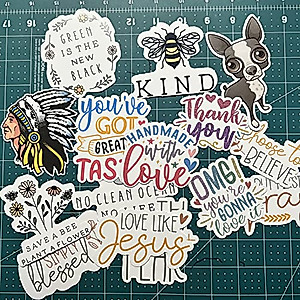 GREEN
IS THE
NEW
BLACK
KIND
you've
GOT
GREAT
TAS
HANDMADE
with
love
Thank
you
choose to
BELIEVE
OMG!
you're
GONNA
love it
NO CLEAN OCEAN
LOVE LIKE
Jesus
SAVE A BEE
PLANT A FLOWER
blessed